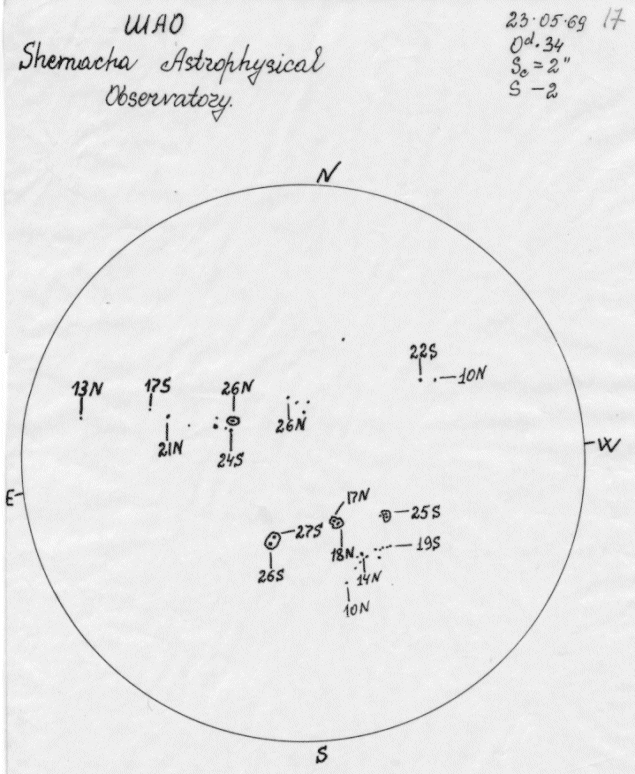 ШАО
Shemacha Astrophysical
Observatory.
23.05.69 17
0ᵈ.34
S₀ = 2"
S - 2
N
22S
10N
13N
17S
26N
26N
21N
24S
W
E
17N
25S
27S
18N
19S
26S
14N
10N
S